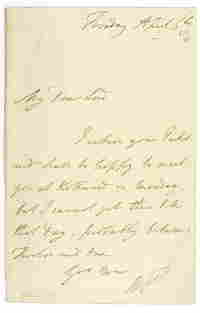 Tuesday April
My Dear Lord
I return your
and shall be happy to meet
you at                on Monday
but I cannot get there till
that day, probably between
Twelve and One
Yrs Ever